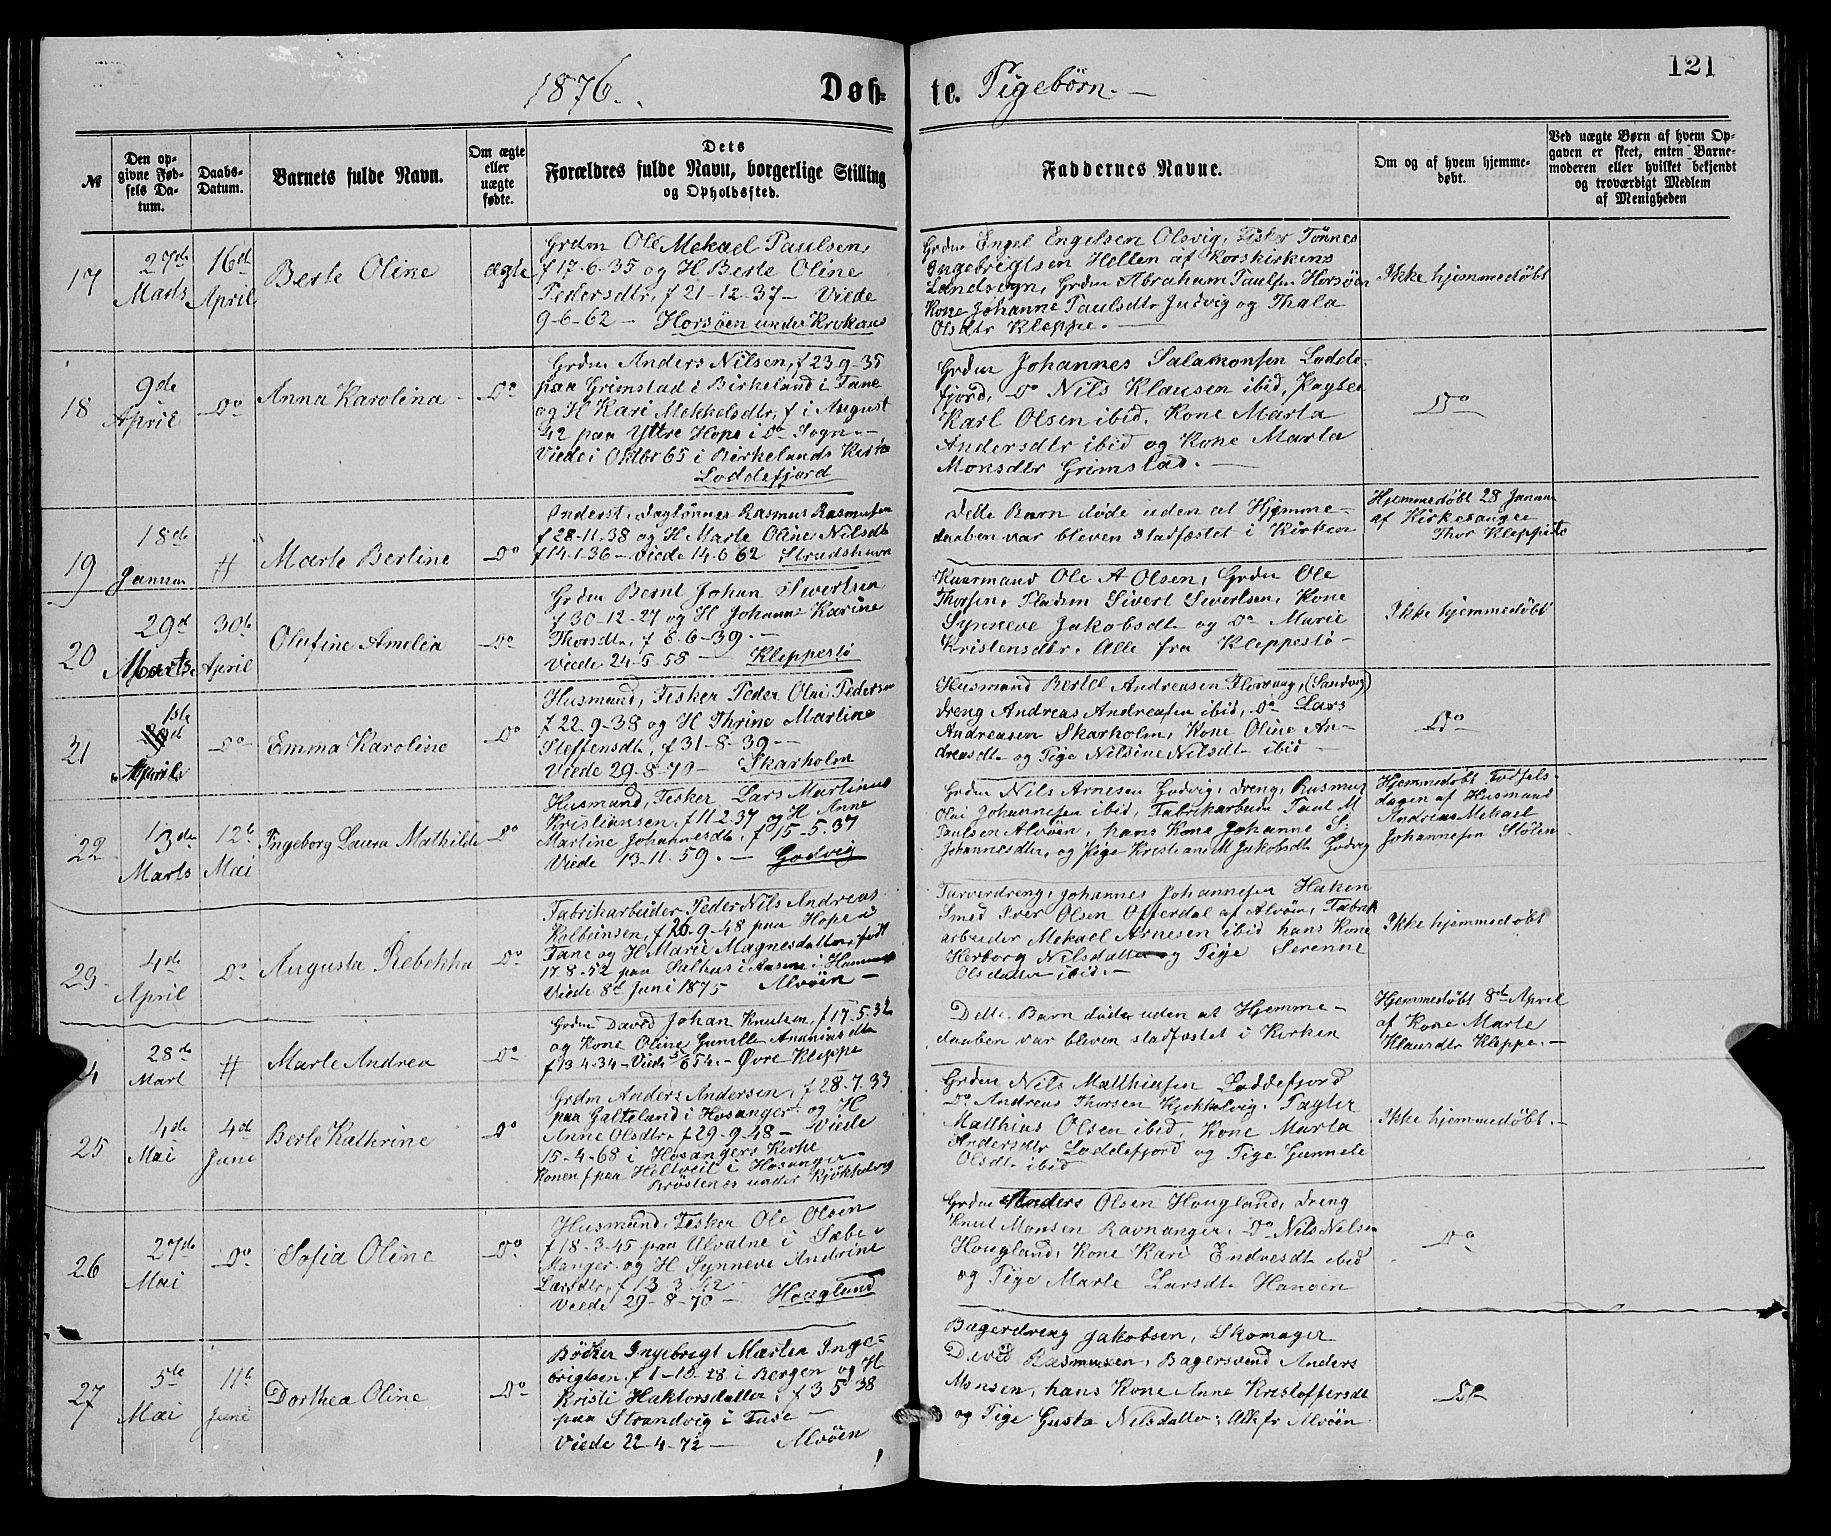 121
1876.
Døb-
te.
Pigebørn.
№
Den op-
givne Fød-
sels Da-
tum.
Daabs-
Datum.
Barnets fulde Navn.
Om ægte
eller
uægte
fødte.
Dets
Forældres fulde Navn, borgerlige Stilling
og Opholdssted.
Faddernes Navne.
Om og af hvem hjemme-
døbt.
Ved uægte Børn af hvem Op-
gaven er skeet, enten Barne-
moderen eller hvilket bekjendt
og troværdigt Medlem
af Menigheden
17
27de
Marts
16de
April
Berte Oline
ægte
Grdm Ole Mekael Paulsen,
f 17-6-35 og H Berte Oline
Pedersdtr, f 21-12-37 - Viede
9-6-62 - Horsøen under Krokaas
Grdm Engel Engelsen Olsvig, Fisker Tønnes
Ingebrigtsen Hellen af Korskirkens
Landsogn, Grdm Abraham Paulsen Horsøen
Kone Johanne Paulsdtr Judvig og Thala
Olsdtr Kleppe.
Ikke hjemmedøbt
18
9de
April
Do
Anna Karolina
Do
Grdm Anders Nilsen, f 23-9-35
paa Grimstad i Birkeland i Fane
og H Kari Mekkelsdtr, f i August
42 paa Yttre Hope i Do Sogn
Viede i Oktbr 65 i Birkelands Kirke
Loddefjord
Grdm Johannes Salamonsen Lodde-
fjord, Do Nils Klausen ibid, Pagter
Karl Olsen ibid, Kone Marta
Andersdtr ibid og Kone Marta
Monsdtr Grimstad.
Do
19
18de
Januar
#
Marte Bertine
Do
Inderst, Daglønner Rasmus Rasmusen
f 28-11-38 og H Marte Oline Nilsdtr
f 14-1-36 - Viede 14-6-62 Strudshavn
Dette Barn døde uden at Hjemme-
daaben var bleven stadfæstet i Kirken
Hjemmedøbt 28 Januar
af Kirkesanger
Thor Kleppestø
20
29de
Marts
30te
April
Olufine Amelia
Do
Grdm Bernt Johan Sivertsen
f 30-12-27 og H Johanne Karine
Thorsdtr, f 6-6-39.
Viede 24-6-58 - Kleppestø
Kaarmand Ole A Olsen, Grdm Ole
Thorsen, Pladsm Sivert Sivertsen, Kone
Synneve Jakobsdtr og Do Marie
Kristensdtr. Alle fra Kleppestø
Ikke hjemmedøbt
21
1ste
April
Do
Emma Karoline
Do
Husmand, Fisker Peder Olai Pedersen
f 22-9-38 og H Thrine Martine
Steffensdtr, f 31-8-39
Viede 29-8-70 - Skarholm
Husmand Bertel Andreasen Florvaag, (Sandvig)
Dreng Andreas Andreasen ibid, Do Lars
Andreasen Skarholm, Kone Oline An-
dreasdtr og Pige Nilsine Nilsdtr ibid
Do
22
13de
Marts
12te
Mai
Ingeborg Laura Mathilde
Do
Husmand, Fisker Lars Martinus
Kristiansen, f 11-2-37 og H Anne
Martine Johannesdtr, f 15-5-37
Viede 13-11-59. - Godvig
Grdm Nils Arnesen Godvig, Dreng Rasmus
Olai Johannesen ibid, Fabrikarbeider Paul M
Paulsen Alvøen, hans Kone Johanne S:
Johannesdtr, og Pige Kristiane M Jakobsdtr Godvig
Hjemmedøbt Fødsels-
dagen af Husmand
Andreas Mekael
Johannesen Stølen
23
4de
April
Do
Augusta Rebekka
Do
Fabrikarbeider Peder Nils Andreas
Kolbeinsen, f 20-9-48 paa Hope i
Fane og H Marie Magnesdatter, født
17-8-52 paa Salhus i Aasene i Hammer
Viede 8de Juni 1875 Alvøen
Farverdreng, Johannes Johannesen Haken
Smed Iver Olsen Offerdal af Alvøen, Fabrik
arbeider Mekael Arnesen ibid hans Kone
Herborg Nilsdatter og Pige Serenne
Olsdatter ibid.
Ikke hjemmedøbt
4
28de
Mart
#
Marte Andrea
Do
Grdm David Johan Knutsen, f 17-5-32
og Kone Oline Gunille Ananiasdtr
f 13-4-34 - Viede 654 - Øvre Kleppe
Dette Barn døde uden at Hjemme-
daaben var bleven stadfæstet i Kirken
Hjemmedøbt 8de April
af Kone Marte
Klausdtr Kleppe.
25
4de
Mai
4de
Juni
Berte Kathrine
Do
Grdm Anders Andersen, f 28-7-33
paa Galteland i Hosanger og H
Anne Olsdtr, f 29-9-48 - Viede
15-4-68 i Hosangers Kirke
Konen f paa Heltveit i Hosanger
Brøstenes under Kjøkkelvig
Grdm Nils Matthiasen Loddefjord
Do Andreas Thorsen Kjøkkelvig, Pagter
Matthias Olsen ibid, Kone Marta
Andersdtr Loddefjord og Pige Gunnele
Olsdtr ibid
Ikke hjemmedøbt.
26
27de
Mai
Do
Sofia Oline
Do
Husmand, Fisker Ole Olsen
f 18-3-45 paa Ulvatne i Sæbø i
Manger og H Synneve Andrine
Larsdtr, f 13-3-42
Viede 29-8-70 - Hauglund
Grdm Anders Olsen Hougland, Dreng
Knut Monsen Ravnanger, Do Nils Nilsen
Hougland, Kone Kari Endresdtr ibid
og Pige Marte Larsdtr Hanøen
Do
27
5te
Mai
11te
Juni
Dorthea Oline
Do
Bødker Ingebrigt Marten Inge-
brigtsen, f 1-10-28 i Bergen og H
Kristi Haktorsdatter, f 3 5 38
paa Strandvig i Fuse
Viede 22-4-72 - Alvøen
Bagerdreng Jakobsen, Skomager
David Rasmusen, Bagersvend Anders
Monsen, hans Kone Anne Kristoffersdtr
og Pige Gusta Nilsdatter, Alle fr Alvøen
Do